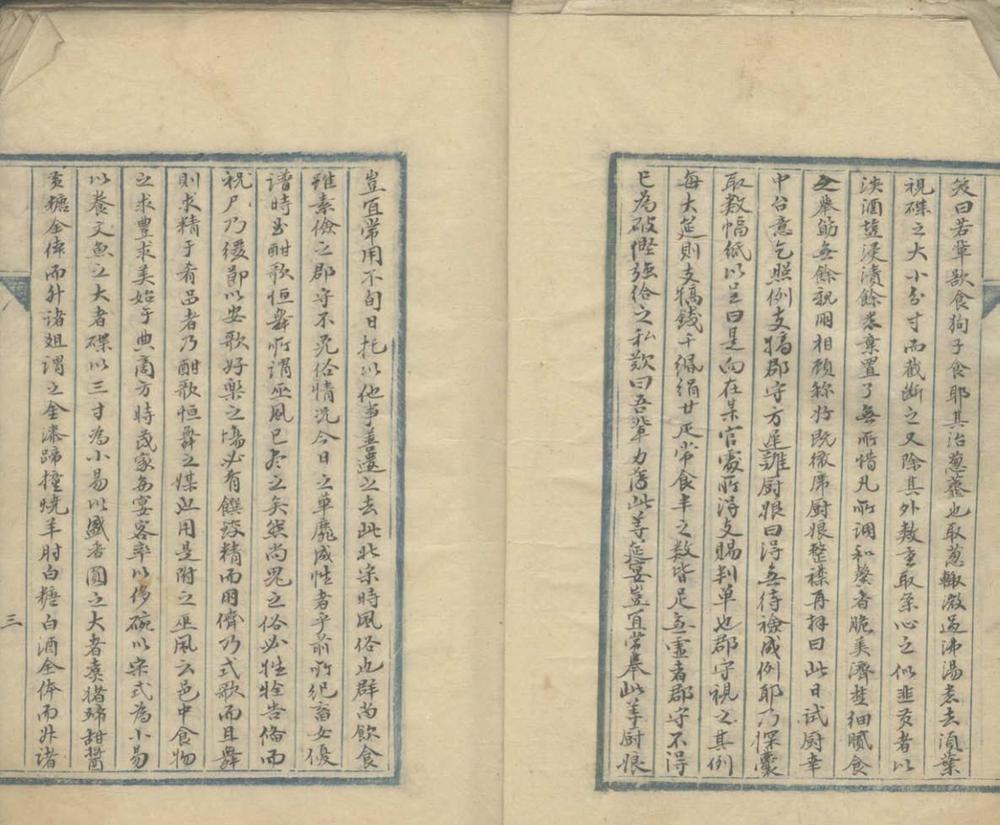 笑曰若輩欲食狗子食耶其治葱齏也取葱輙澂過沸湯悉去湏葉
視碟之大小分寸而截斷之又除其外数重取条心之似韭黄者以
淡酒盬浸漬餘悉棄置了無所惜凡所調和馨香脆美濟楚細膩食
之舉筯無餘親朋相顧稱好既徹席厨娘整襟再拜曰此日試厨幸
中台意乞照例支犒郡守方遅難厨娘曰得無待檢成例耶乃探囊
取数幅紙以呈曰是向在某官處所得支賜判单也郡守視之其例
每大筵則支犒錢千緡絹廿疋常食半之数皆足無虚者郡守不得
已為破慳強給之私歎曰吾輩力薄此等筵宴豈宜常舉此等厨娘
豈宜常用不旬日托以他事善還之去此北宋時風俗也群尚飲食
雖素儉之郡守不免俗情况今日之单靡成性者乎前所紀畜女優
譜時曲酣歌恒舞所謂巫風已尽之矣然尚鬼之俗必牲牷告偹而
祝尸乃緩節以安歌好樂之塲必有饌殽精而朋儕乃式歌而且舞
則求精于肴品者乃酣歌恒舞之媒也用是附之巫風云邑中食物
之求豊求美始于典商方時茂家每宴客率以侈碗以宋式為小易
以養文魚之大者碟以三寸為小易以盛香圓之大者爇猪蹄甜醬
黄糖全体而升诸俎謂之金漆蹄撞燒羊肘白糖白酒全体而升诸
三